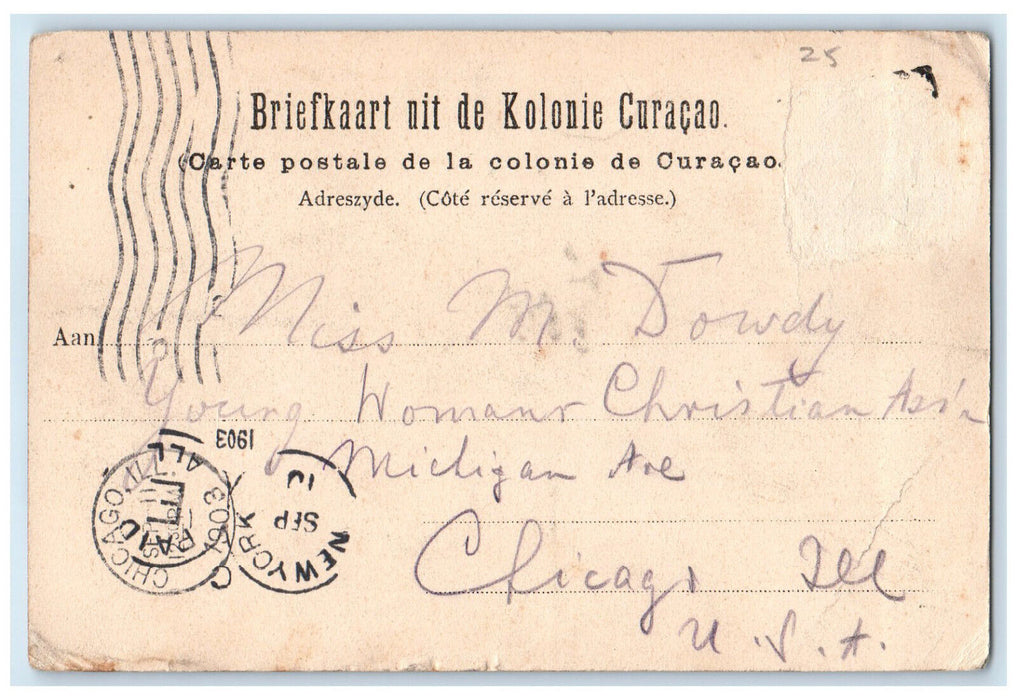 25
Briefkaart uit de Kolonie Curaçao.
(Carte postale de la colonie de Curaçao.
Adreszyde. (Côté réservé à l'adresse.)
Aan Miss M. Dowdy
Young Womans Christian Ass'n
Michigan Ave
Chicago Ill
U.S.A.
1903
NEW YORK
SEP
10
PAID
ALL
CHICAGO, ILL.
1903